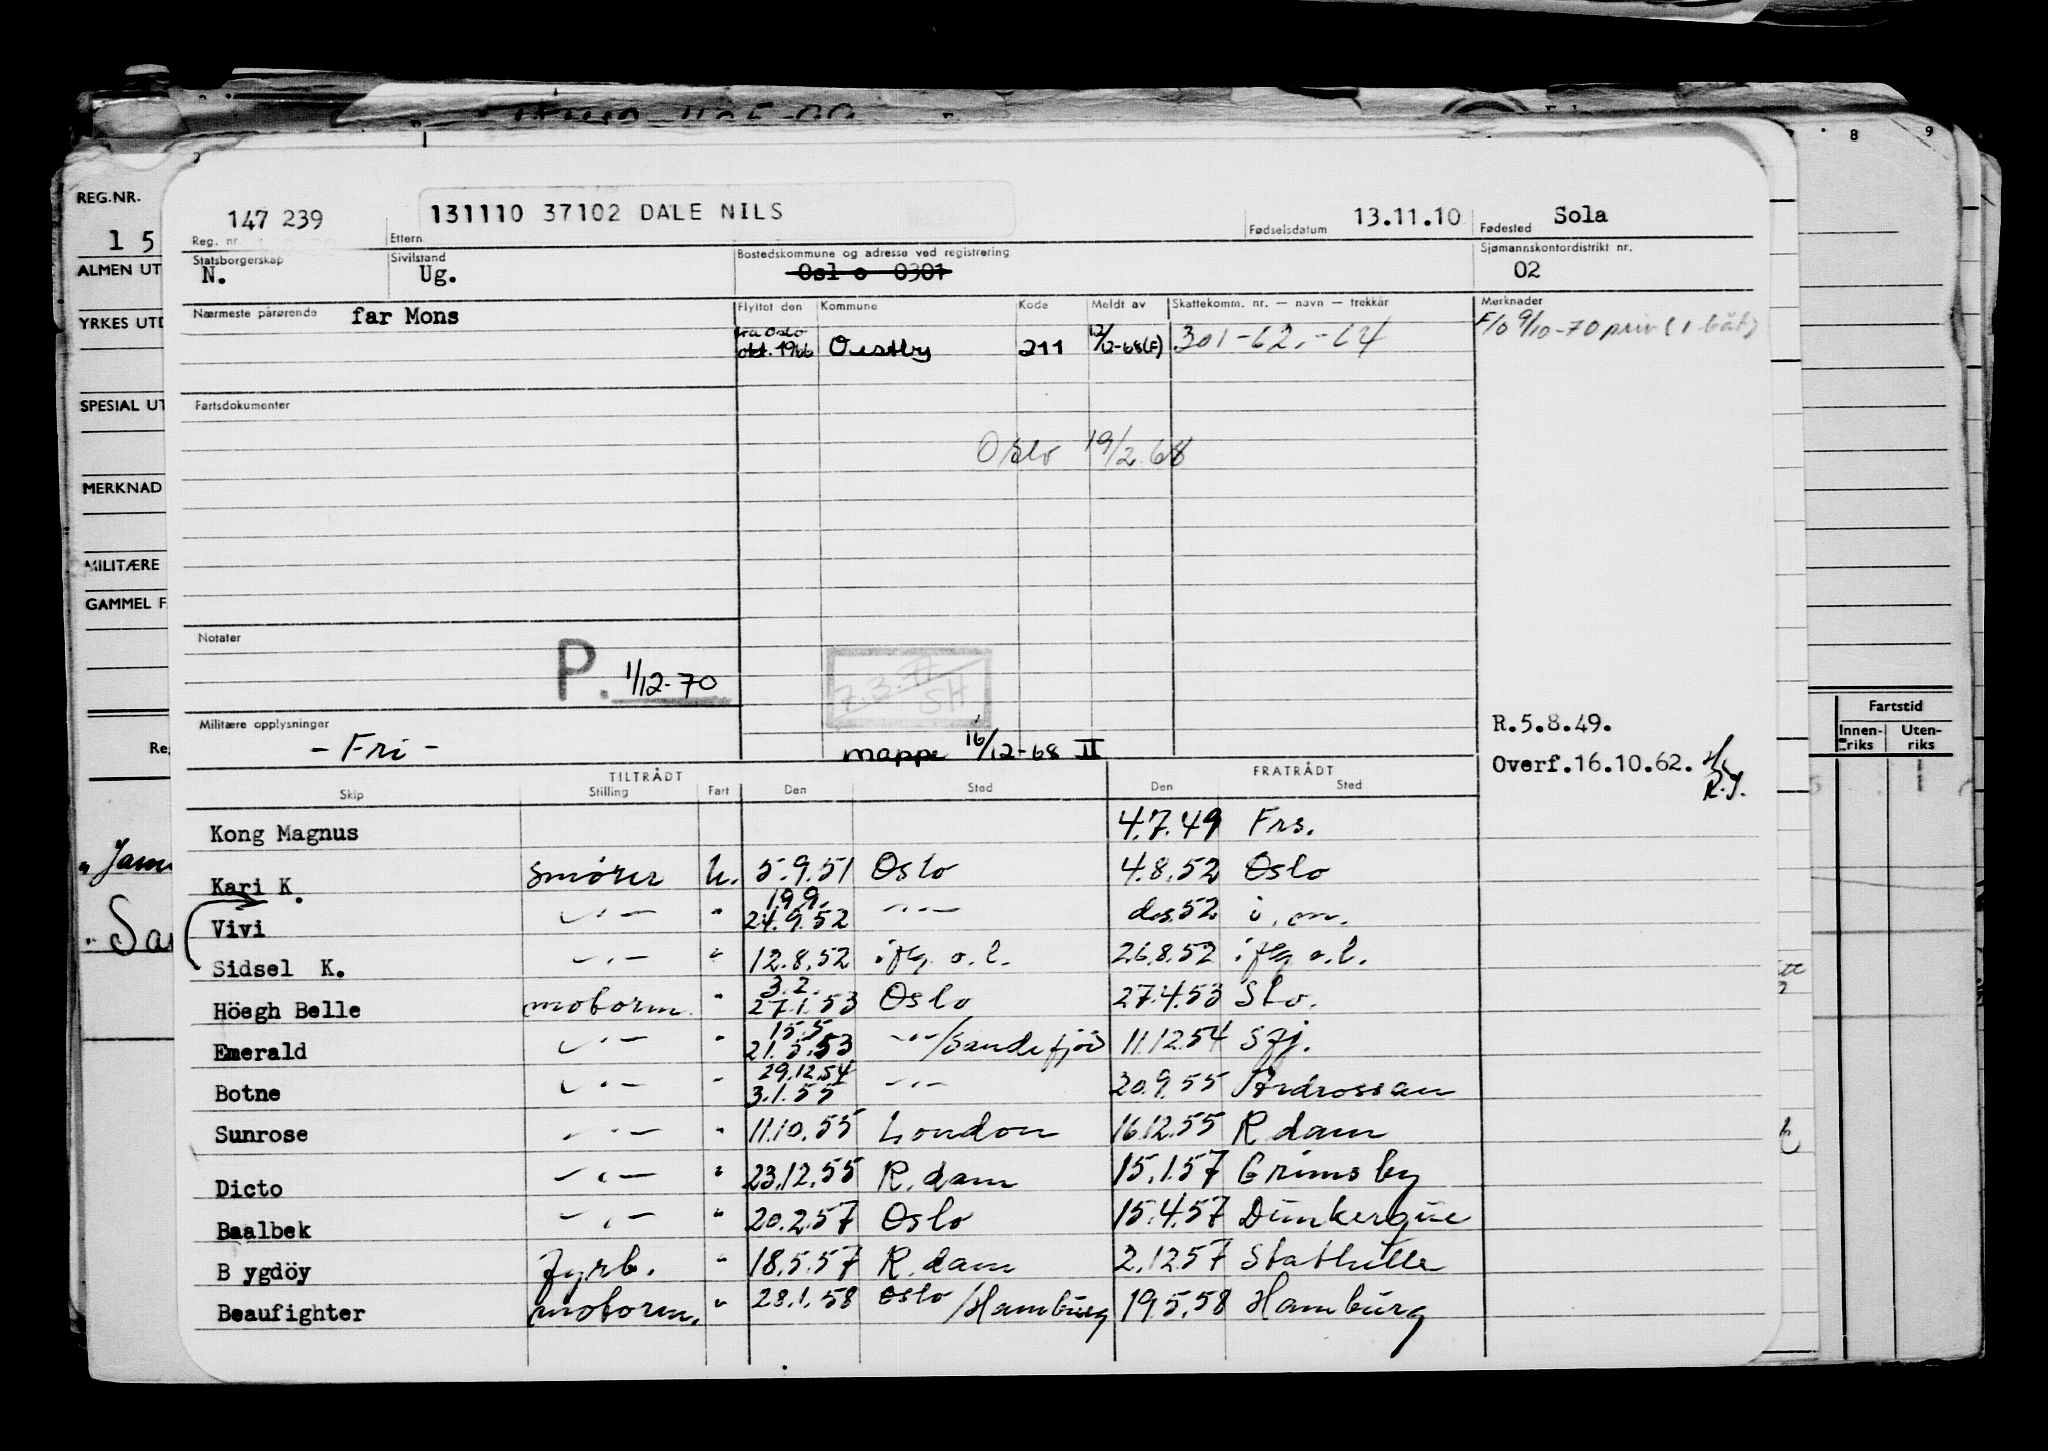 8 9
REG.NR.
15
ALMEN UT
YRKES UTD
SPESIAL UT
MERKNAD
MILITÆRE
GAMMEL F
147 239 131110 37102 DALE NILS 13.11.10 Sola
Reg. nr. Ettern Fødselsdatum Fødested
Statsborgerskap Sivilstand Bostedskommune og adresse ved registrering Sjømannskontordistrikt nr.
N. Ug. Osl o 0301 02
Nærmeste pårørende far Mons Flyttet den Kommune Kode Meldt av Skattekomm. nr. — navn — trekkår Merknader
fra Oslo F/o 9/10-70 priv (1 båt)
okt. 1966 Oestby 211 12/12-68(F) 301-62.-64
Fartsdokumenter
Oslo 19/2.68
Notater
P. 1/12-70
SH
Militære opplysninger R.5.8.49.
- Fri - mappe 16/12-68 II Overf.16.10.62.
R.J.
TILTRÅDT FRATRÅDT
Skip Stilling Fart Den Sted Den Sted
Kong Magnus 4.7.49 Frs.
Kari K. smører U. 5.9.51 Oslo 4.8.52 Oslo
19.9.
Vivi — " — " 24.9.52 — " — des.52 i. m.
Sidsel K. — " — " 12.8.52 iflg. o.l. 26.8.52 iflg o.l.
3.2.
Höegh Belle motorm. " 27.1.53 Oslo 27.4.53 Slo.
15.5
Emerald — " — " 21.5.53 — " — /Sandefjord 11.12.54 Sfj.
29.12.54
Botne — " — " 3.1.55 — " — 20.9.55 Ardrossan
Sunrose — " — " 11.10.55 London 16.12.55 R dam
Dicto — " — " 23.12.55 R. dam 15.1.57 Grimsby
Baalbek — " — " 20.2.57 Oslo 15.4.57 Dunkerque
B ygdöy fyrb. " 18.5.57 R. dam 2.12.57 Stathelle
Beaufighter motorm. " 28.1.58 Oslo /Hamburg 19.5.58 Hamburg
Fartstid
Innen-
riks
Uten-
riks